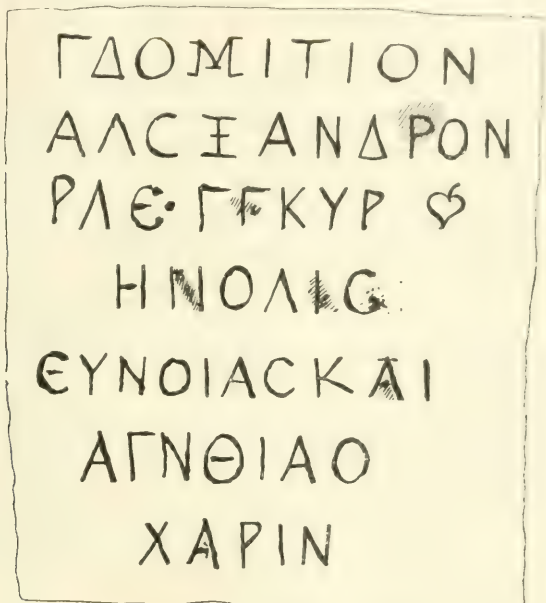 ΓΔΟΜΙΤΙΟΝ
ΑΛϹΞΑΝΔΡΟΝ
ΡΛЄ·ΓΓΚΥΡ ❦
ΗΝΟΛΙϹ
ЄΥΝΟΙΑϹΚΑΙ
ΑΓΝΘΙΑΟ
ΧΑΡΙΝ